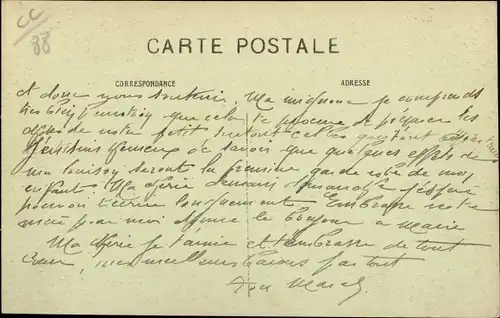 CC
88
CARTE POSTALE
CORRESPONDANCE
ADRESSE
et donc nous soutenir. Ma mignonne je comprends
très bien que cela te procure de préparer les
de notre petit surtout celles qui sont
Je suis heureux de savoir que quelques effets de
mon seront la première garde robe de mon
enfant. Ma chérie demain dimanche j'espère
pouvoir t'écrire longuement. Embrasse notre
nièce par moi donne le bonjour à Marie
Ma chérie je t'aime et t'embrasse de tout
coeur, mes meilleurs baisers partout
Ton Marcel